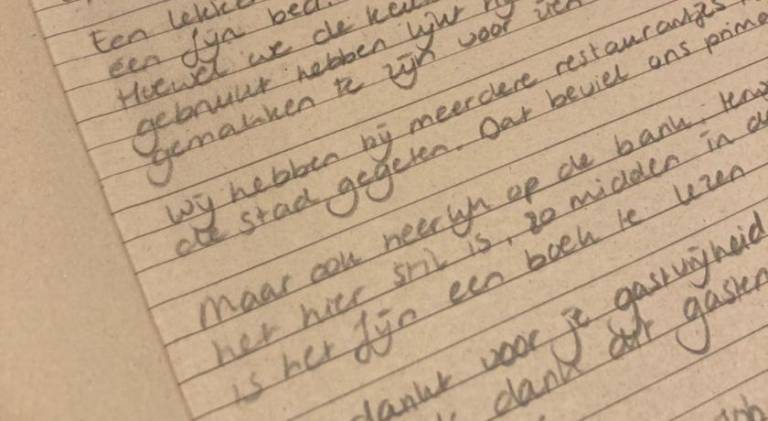 Een lekke
een fijn bed.
Hoewel we de keu
gebruikt hebben lijkt hij
gemakken te zijn voor
Wij hebben bij meerdere restaurantjes
de stad gegeten. Dat beviel ons prima
Maar ook heerlijk op de bank, terw
het hier stil is, zo midden in de
is het fijn een boek te lezen
dankt voor je gastvrijheid
dank dat gasten